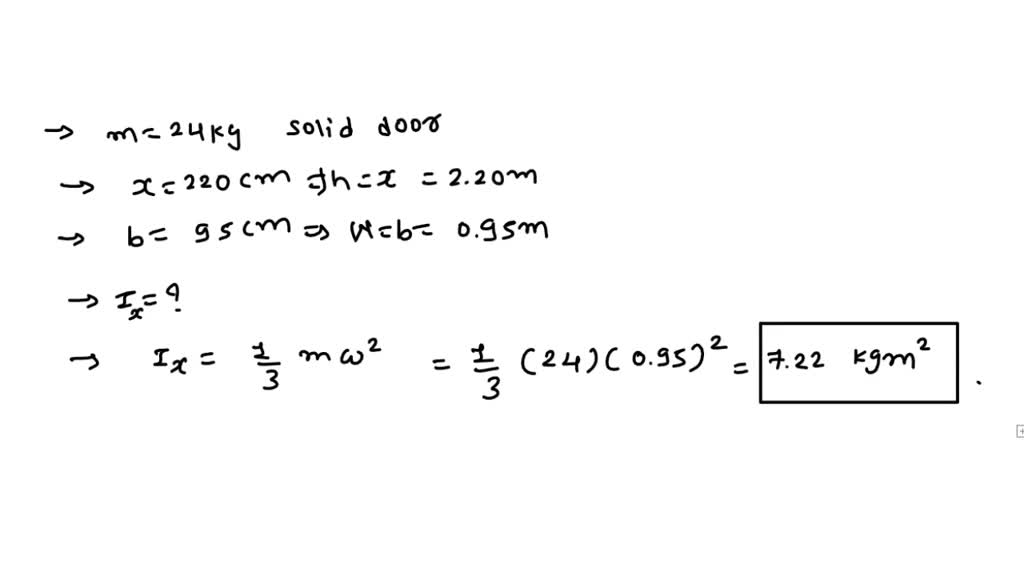 → m = 24kg solid door
→ x = 220 cm ⇒ h = x = 2.20m
→ b = 95cm ⇒ W = b = 0.95m
→ Iₓ = ?
→ Iₓ = 1/3 mω² = 1/3 (24)(0.95)² = 7.22 kgm² .